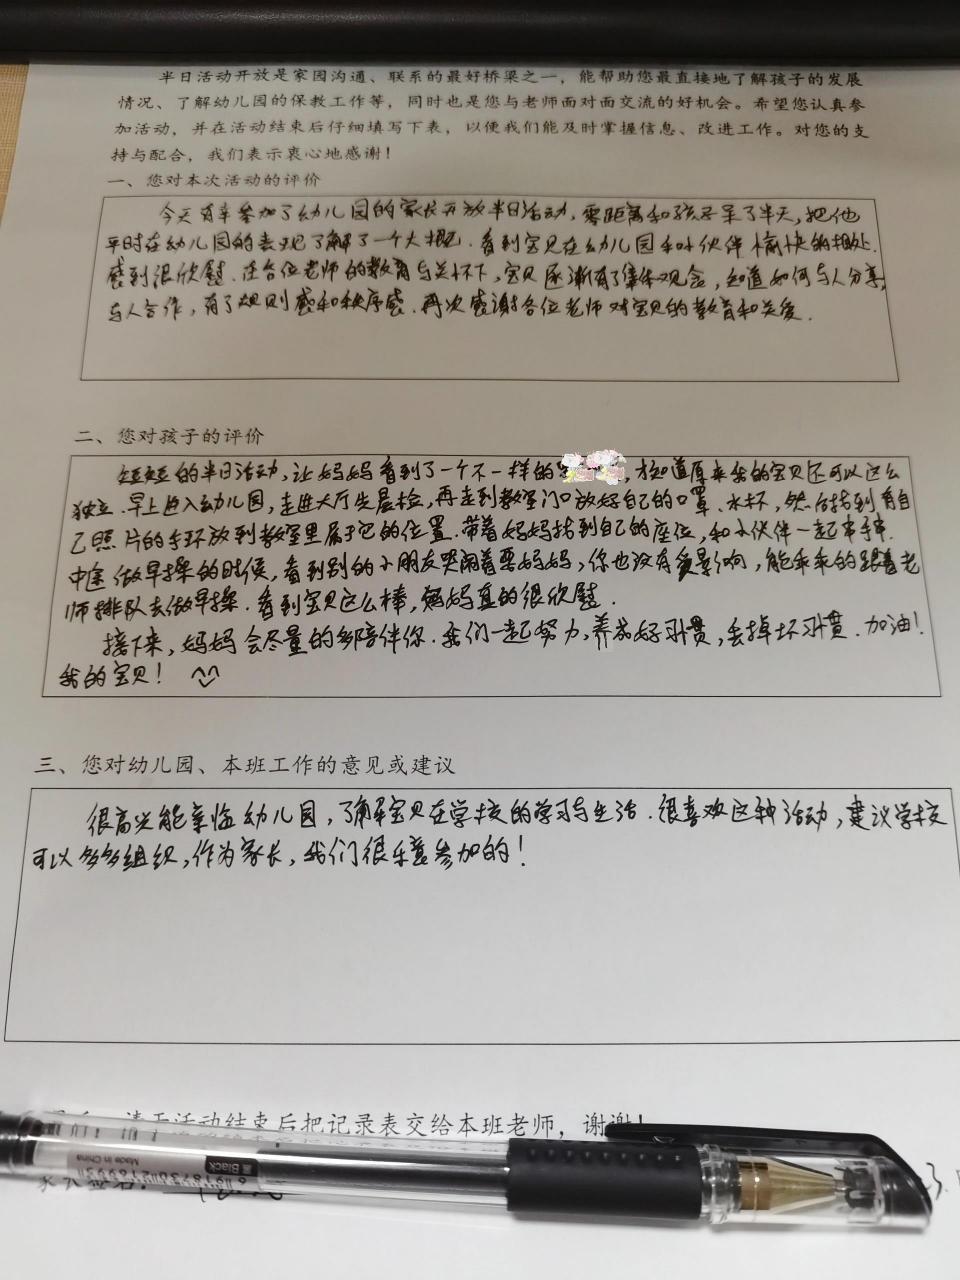 半日活动开放是家园沟通、联系的最好桥梁之一，能帮助您最直接地了解孩子的发展
情况、了解幼儿园的保教工作等，同时也是您与老师面对面交流的好机会。希望您认真参
加活动，并在活动结束后仔细填写下表，以便我们能及时掌握信息、改进工作。对您的支
持与配合，我们表示衷心地感谢！
一、您对本次活动的评价
今天有幸参加了幼儿园的家长开放半日活动，零距离和孩子呆了半天，把他
平时在幼儿园的表现了解了一个大概．看到宝贝在幼儿园和小伙伴愉快的相处．
感到很欣慰．在各位老师的教育与关怀下，宝贝逐渐有了集体观念，知道如何与人分享，
与人合作，有了规则感和秩序感．再次感谢各位老师对宝贝的教育和关爱．
二、您对孩子的评价
短短的半日活动，让妈妈看到了一个不一样的，才知道原来我的宝贝还可以这么
独立．早上进入幼儿园，走进大厅先晨检，再走到教室门口放好自己的口罩．水杯，然后找到有自
己照片的手环放到教室里属于它的位置．带着妈妈找到自己的座位，和小伙伴一起
中途做早操的时候，看到别的小朋友哭闹着要妈妈，你也没有受影响，能乖乖的跟着老
师排队去做早操．看到宝贝这么棒，妈妈真的很欣慰．
接下来，妈妈会尽量的多陪伴你．我们一起努力，养成好习惯，丢掉坏习惯．加油！
我的宝贝！ ^^
三、您对幼儿园、本班工作的意见或建议
很高兴能亲临幼儿园，了解宝贝在学校的学习与生活．很喜欢这种活动，建议学校
可以多多组织，作为家长，我们很乐意参加的！
请于活动结束后把记录表交给本班老师，谢谢！
Black
Made in China